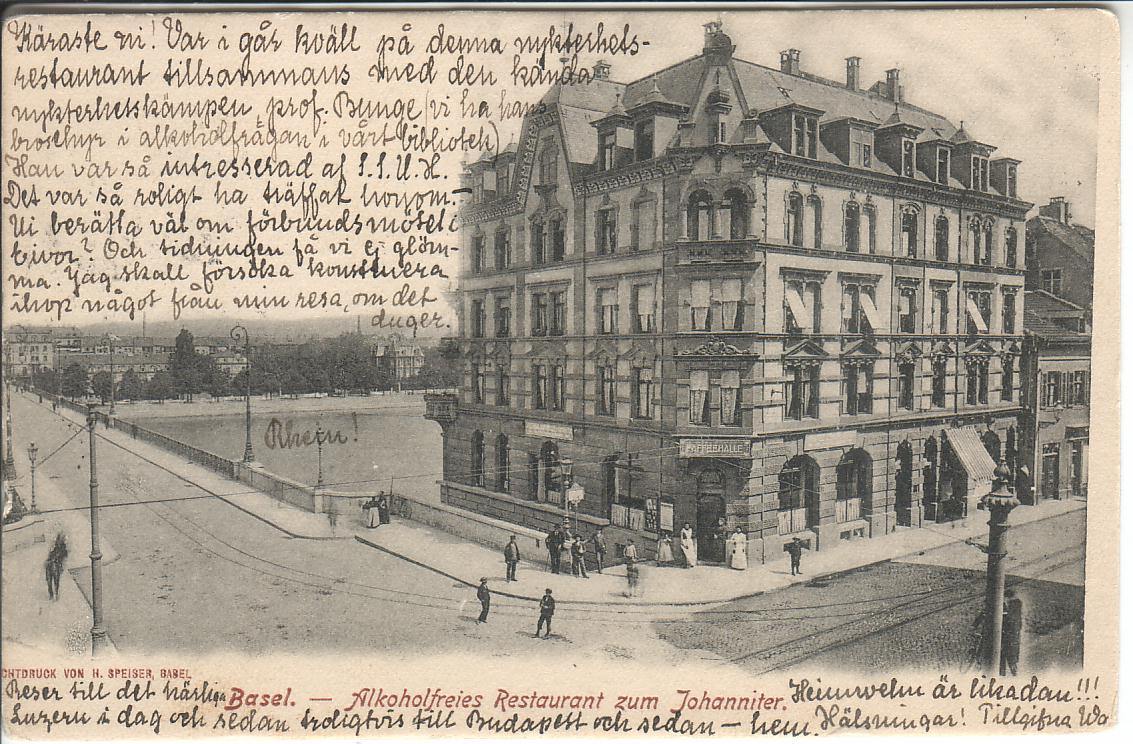 Käraste ni! Var i går kväll på denna nykterhets-
restaurant tillsammans med den kända
nykterhetskämpen prof. Bunge (vi ha hans
broschyr i alkoholfrågan i vårt bibliotek)
Han var så intresserad af S.S.U.H.
Det var så roligt ha träffat honom.-
Vi berätta väl om förbundsmötet i
? Och tidningen få vi ej glöm-
ma. Jag skall försöka konstruera
ihop något från min resa, om det
duger.
Rhein!
KAFFEEHALLE
CHTDRUCK VON H. SPEISER, BASEL
Basel. — Alkoholfreies Restaurant zum Johanniter.
Reser till det härliga
Luzern i dag och sedan troligtvis till Budapest och sedan – hem.
Heimwehn är likadan!!!
Hälsningar! Tillgifna Wa